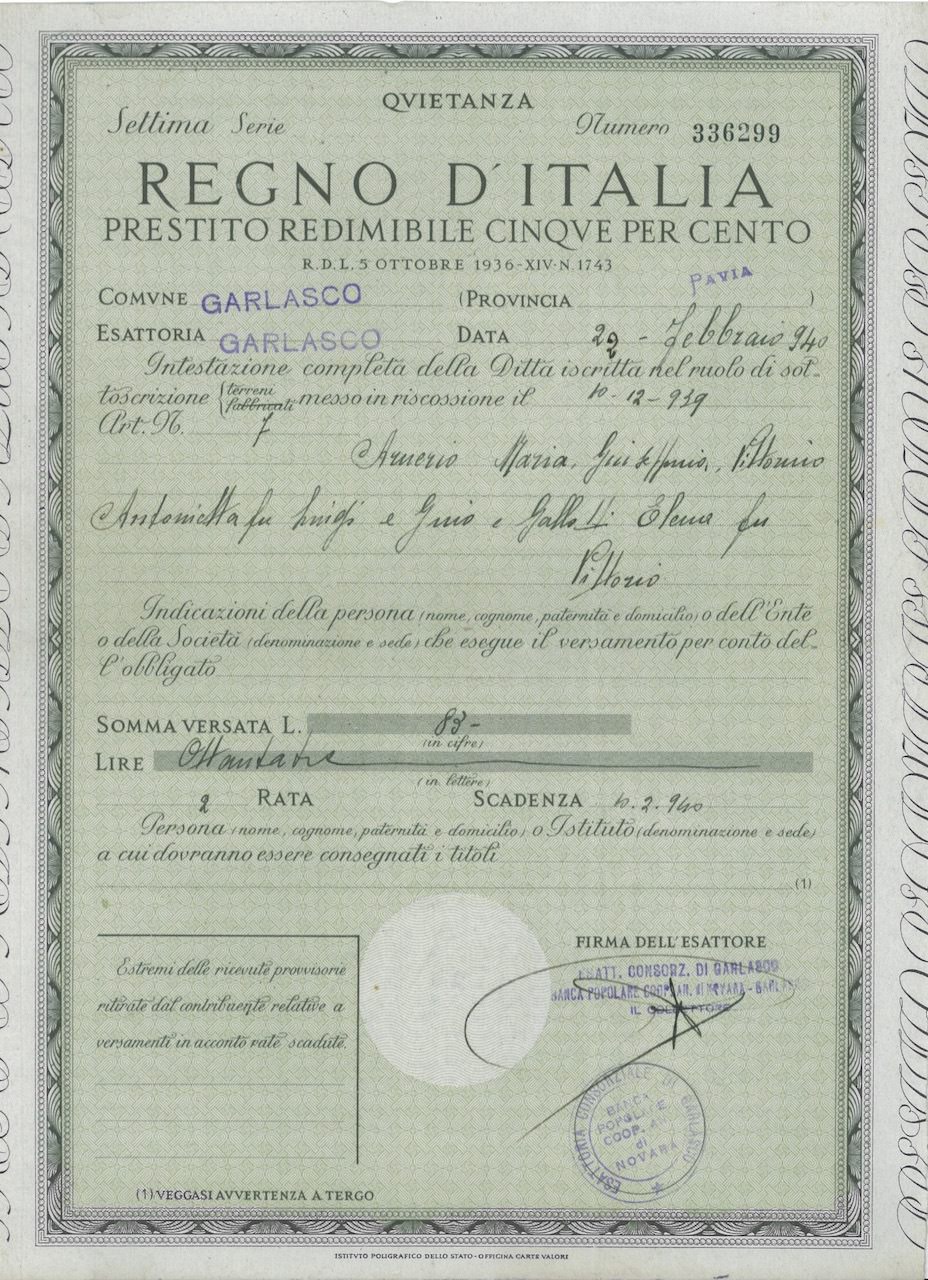 QVIETANZA
Settima Serie Numero 336299
REGNO D'ITALIA
PRESTITO REDIMIBILE CINQVE PER CENTO
R.D.L. 5 OTTOBRE 1936-XIV-N.1743
COMVNE GARLASCO (PROVINCIA PAVIA )
ESATTORIA GARLASCO DATA 22 - Febbraio 940
Intestazione completa della Ditta iscritta nel ruolo di sot-
toscrizione {terreni fabbricati messo in riscossione il 10-12-939
Art. N. 7
Maria, Vittorio
Antonietta fu Luigi e Gino e Gallotti Elena fu
Vittorio
Indicazioni della persona (nome, cognome, paternità e domicilio) o dell'Ente
o della Società (denominazione e sede) che esegue il versamento per conto del-
l'obbligato
SOMMA VERSATA L. 83-
(in cifre)
LIRE Ottantatre
(in lettere)
2 RATA SCADENZA 10.2.940
Persona (nome, cognome, paternità e domicilio) o Istituto (denominazione e sede)
a cui dovranno essere consegnati i titoli
(1)
FIRMA DELL'ESATTORE
ESATT. CONSORZ. DI GARLASCO
BANCA POPOLARE COOP. AN. di NOVARA - GARLASCO
IL COLLETTORE
Estremi delle ricevute provvisorie
ritirate dal contribuente relative a
versamenti in acconto rate scadute.
ESATTORIA CONSORZIALE DI GARLASCO
BANCA
POPOLARE
COOP. AN.
di
NOVARA
(1) VEGGASI AVVERTENZA A TERGO
ISTITVTO POLIGRAFICO DELLO STATO - OFFICINA CARTE VALORI